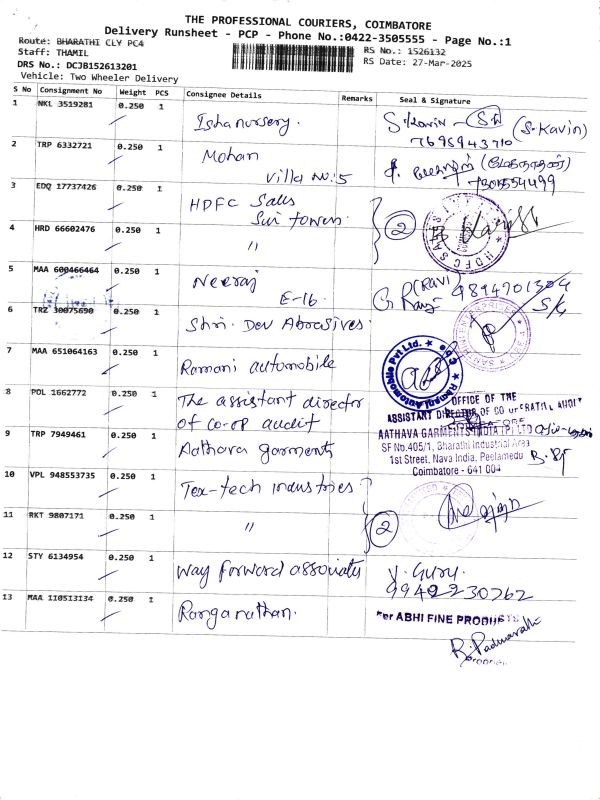 THE PROFESSIONAL COURIERS, COIMBATORE
Delivery Runsheet - PCP - Phone No.:0422-3505555 - Page No.:1
Route: BHARATHI CLY PC4
RS No.: 1526132
Staff: THAMIL
RS Date: 27-Mar-2025
DRS No.: DCJB152613201
Vehicle: Two Wheeler Delivery
S No Consignment No Weight PCS Consignee Details Remarks Seal & Signature
1 NKL 3519281 0.250 1 Isha nursery. S. Kavin (S. Kavin)
7695943710
2 TRP 6332721 0.250 1 Mohan
Villa No: 5 7301554499
3 EDQ 17737426 0.250 1 HDFC Sales
Sri towers. 2 HDFC SALES
4 HRD 66602476 0.250 1 "
5 MAA 600466464 0.250 1 Neeraj
E-16. (Ravi) 9894701304
6 TRZ 30075690 0.250 1 Shri. Dev Abrasives.
7 MAA 651064163 0.250 1 Ramani automobile
Ramani Automobile Pvt Ltd.
8 POL 1662772 0.250 1 The assistant director
of co-op audit
OFFICE OF THE
ASSISTANT DIRECTOR OF CO OPERATIVE AUDIT
9 TRP 7949461 0.250 1 Aathava garments
AATHAVA GARMENTS INDIA (P) LTD
SF No.405/1, Bharathi Industrial Area
1st Street, Nava India, Peelamedu
Coimbatore - 641 004
10 VPL 948553735 0.250 1 Tex-tech industries
11 RKT 9807171 0.250 1 " 2
12 STY 6134954 0.250 1 way forward associates
V. Guru.
9942230262
13 MAA 110513134 0.250 1 Ranganathan.
For ABHI FINE PRODUCTS
R. Padmavathi